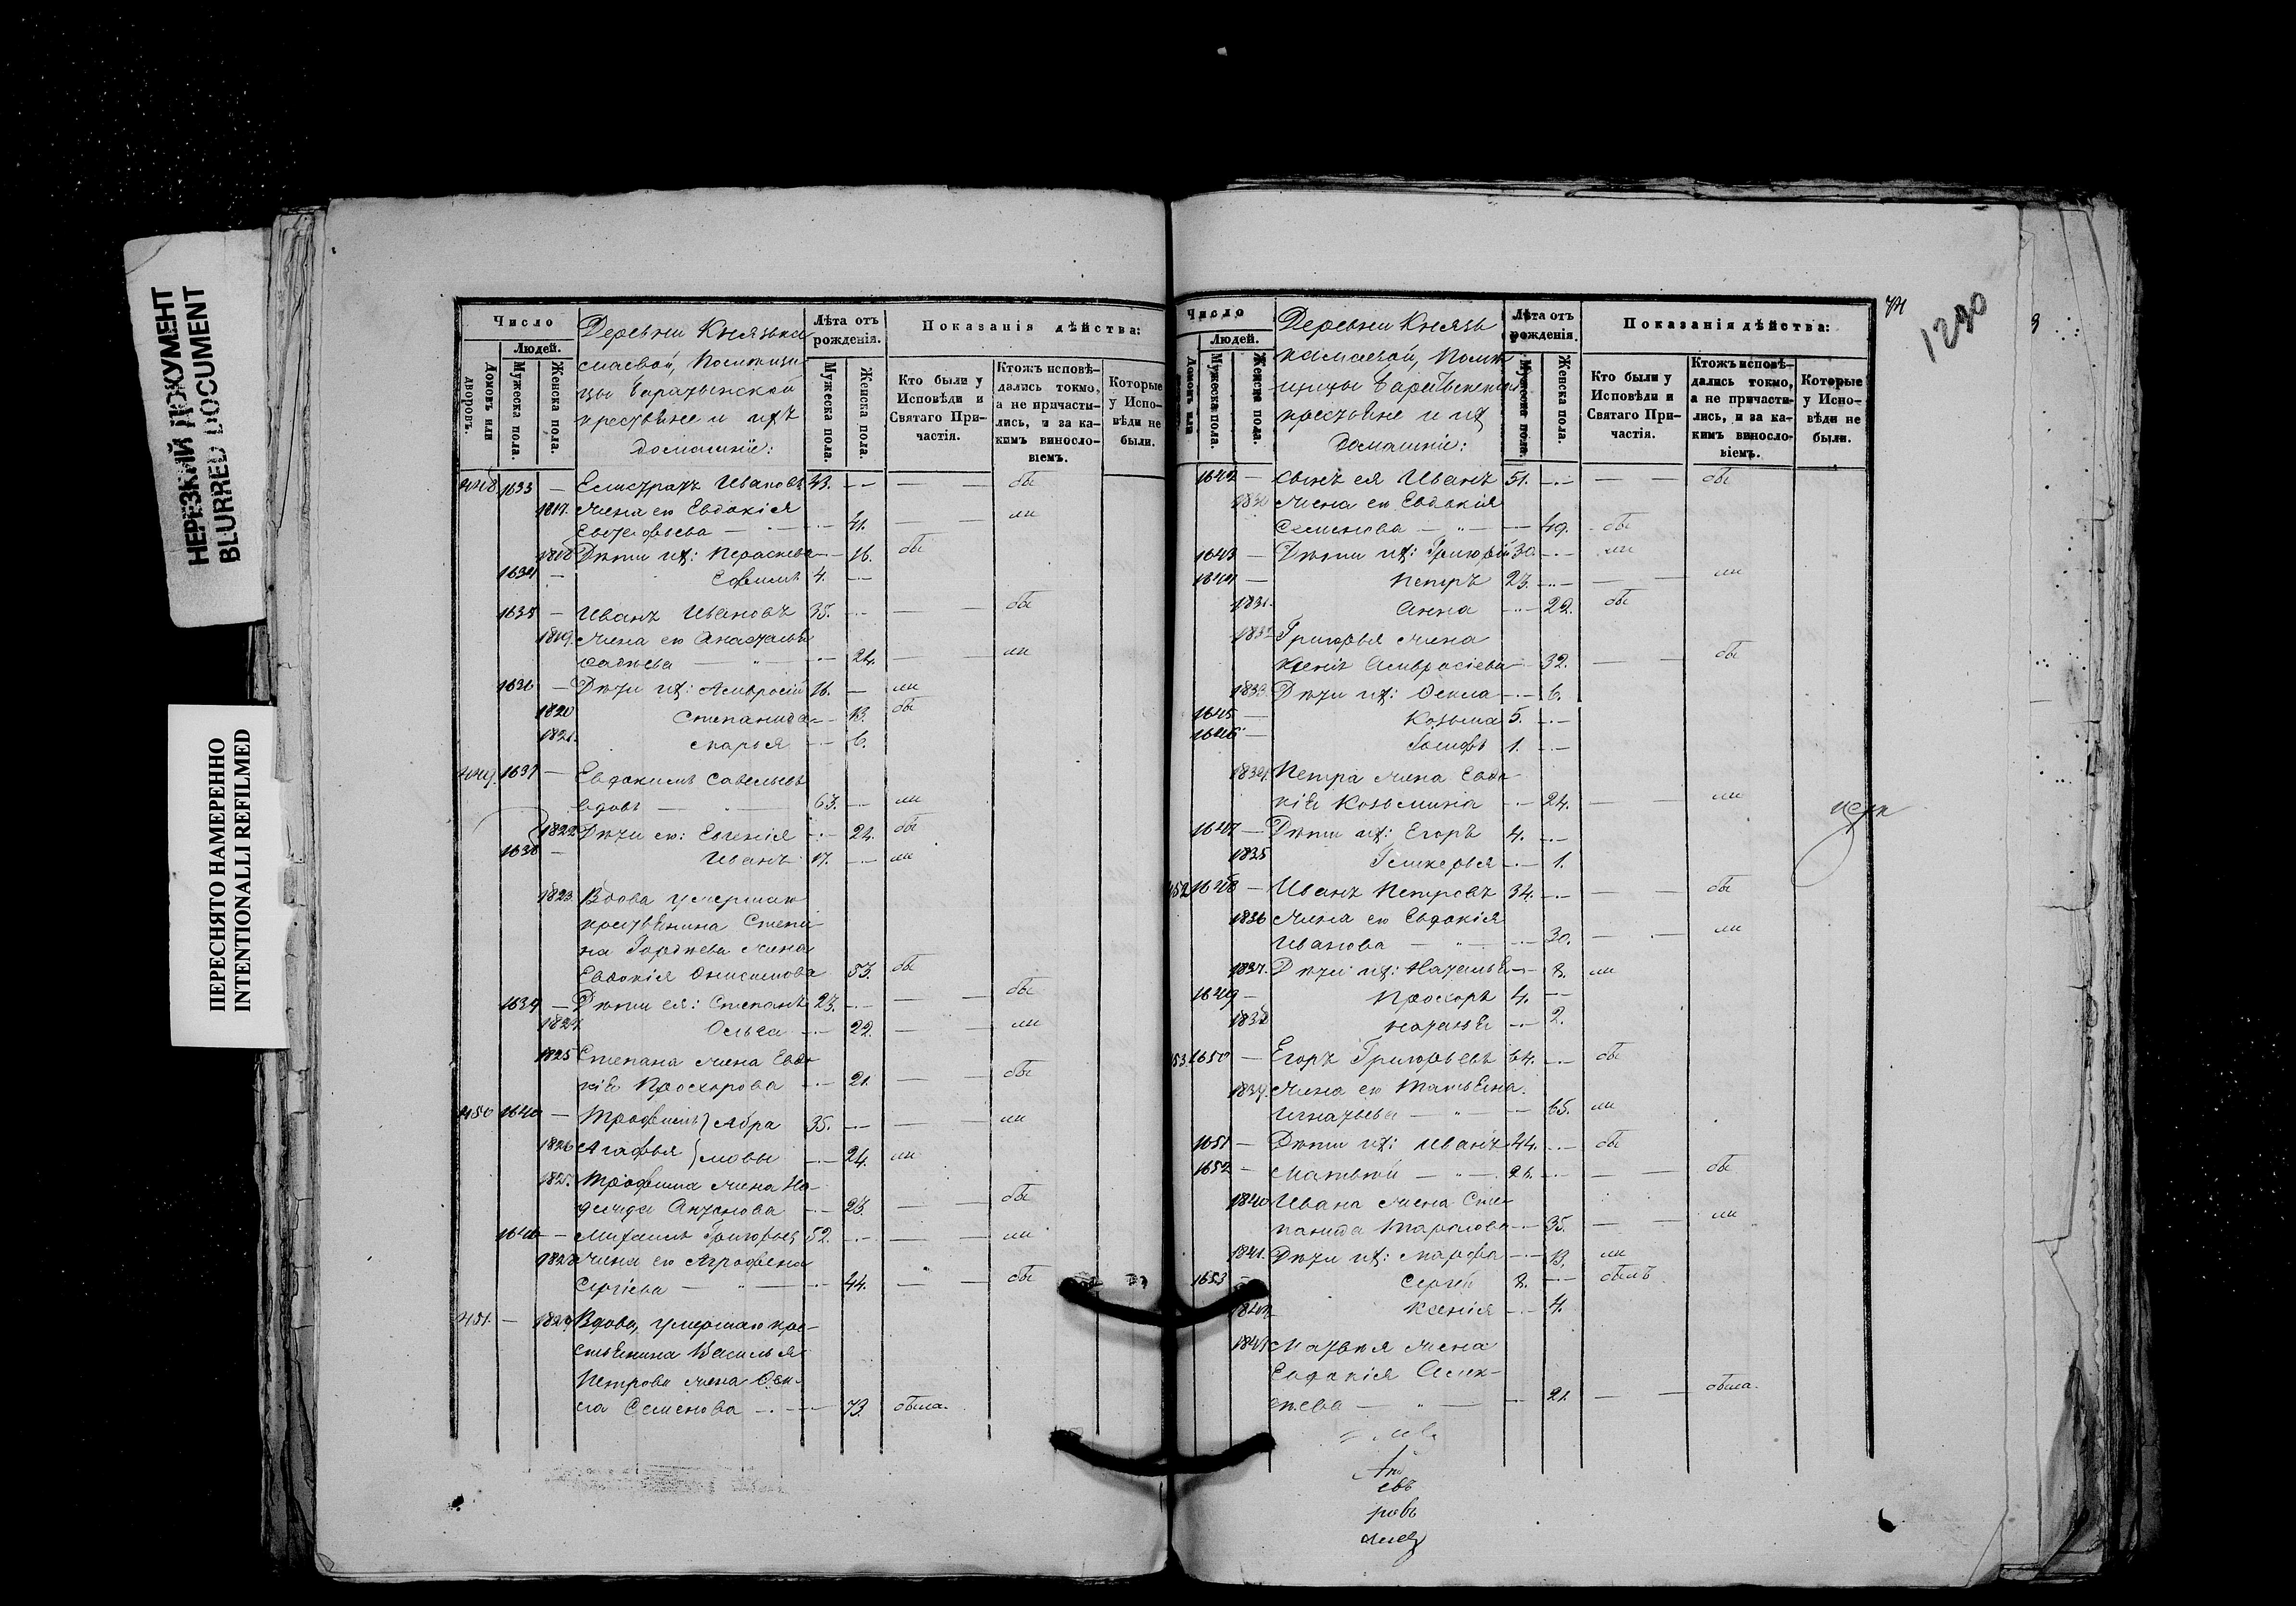 НЕРЕЗКИЙ ДОКУМЕНТ
BLURRED DOCUMENT
ПЕРЕСНЯТО НАМЕРЕННО
INTENTIONALLI REFILMED
Число
Людей.
Домовъ или дворовъ.
Мужеска пола.
Женска пола.
Деревни
крестьяне и ихъ
домашніе:
Лѣта отъ рожденія.
Мужеска пола.
Женска пола.
Показанія дѣйства:
Кто были у Исповѣди и Святаго Причастія.
Ктожъ исповѣдались токмо, а не причастились, и за какимъ винословіемъ.
Которые у Исповѣди не были.
1633 — Елистратъ Ивановъ 43. бы
1817. Жена его Евдокія
41. ли
1818 Дѣти ихъ: Параскева 16. бы
1634 — Ефимъ 4.
1635 — Иванъ Ивановъ 35. бы
1819. Жена его
24. ли
1636 — Дѣти ихъ: Амвросій 16. ли
1820 Степанида 13. бы
1821. Марья 6.
1637 — Евдокимъ Савельевъ
вдовъ 63. ли
1822 Дѣти его: Евгенія 22. бы
1638 — Иванъ 17. ли
1823. Вдова умершаго
крестьянина Степа-
на Гордѣева жена
Евдокія Онисимова 53. бы
1639 — Дѣти ея: Степанъ 23. бы
1824 Ольга 22. ли
1825 Степана жена Евдо-
кія Прохорова 21. бы
450 1640 — Трофимъ } Абра 35. ли
1826 Агафья } мовы 24. ли
1827. Трофима жена На-
Антонова 23. бы
— Михаилъ Григорьев 52. ли
1828 Жена его Аграфена
Сергіева 44. бы
451. — 1829 Вдова, умершаго кре-
стьянина Василья
Петрова жена
Семенова 73. была.
1240
Число
Людей.
Домовъ или
Мужеска пола.
Женска пола.
Деревни Князь
камаевой,
крестьяне и ихъ
домашніе:
Лѣта отъ рожденія.
Мужеска пола.
Женска пола.
Показанія дѣйства:
Кто были у Исповѣди и Святаго Причастія.
Ктожъ исповѣдались токмо, а не причастились, и за какимъ винословіемъ.
Которые у Исповѣди не были.
1642 — Сынъ ея Иванъ 51. бы
1830 Жена его Евдокія
Семенова 49. бы
1643 — Дѣти ихъ: Григорій 30. ли
1644 — Петръ 23. ли
1831. Анна 22. бы
1832 Григорья жена
Ксенія Амвросіева 32. бы
1833. Дѣти ихъ: 6.
1645 — Козьма 5.
1646 — Іосифъ 1.
1834. Петра жена Евдо-
кія Козьмина 24. ли
1647 — Дѣти ихъ: Егоръ 4.
1835 Гликерья 1.
452 1648 — Иванъ Петровъ 34. бы
1836 Жена его Евдокія
Иванова 30. ли
1837. Дѣти ихъ: Наталья 8. ли
1649 — Прохоръ 4.
1838 Наталья 2.
453 1650 — Егоръ Григорьевъ 64. бы
1839. Жена его Татьяна
Игнатьева 65. ли
1651 — Дѣти ихъ: Иванъ 44. бы
1652 — Матвѣй 21. бы
1840 Ивана жена Сте-
панида Тарасова 35. ли
1841. Дѣти ихъ: Марфа 13. ли
1653 — Сергѣй 8. былъ
1842 Ксенія 4.
1843 Матвѣя жена
Евдокія Алек-
сѣева 21. была.
евъ
ровъ